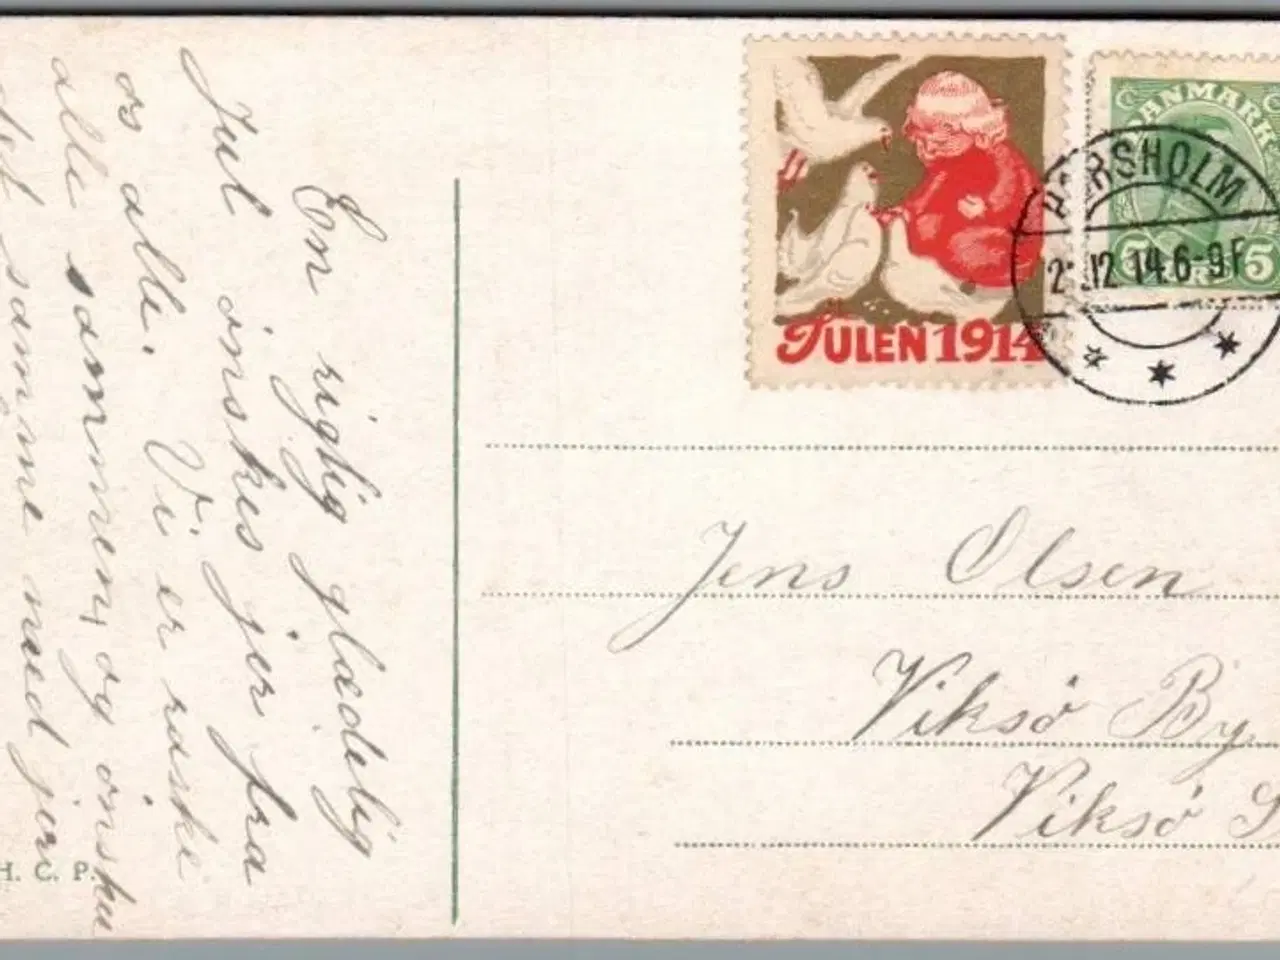 En riglig glædelig
Jul önskes jer fra
os alle. Vi er raske
alle sammen, og önsker
det samme med jer
H. C. P.
JULEN 1914
DANMARK
5 5
HØRSHOLM
12 14 6-9F
Jens Olsen
Viksø By.
Viksø